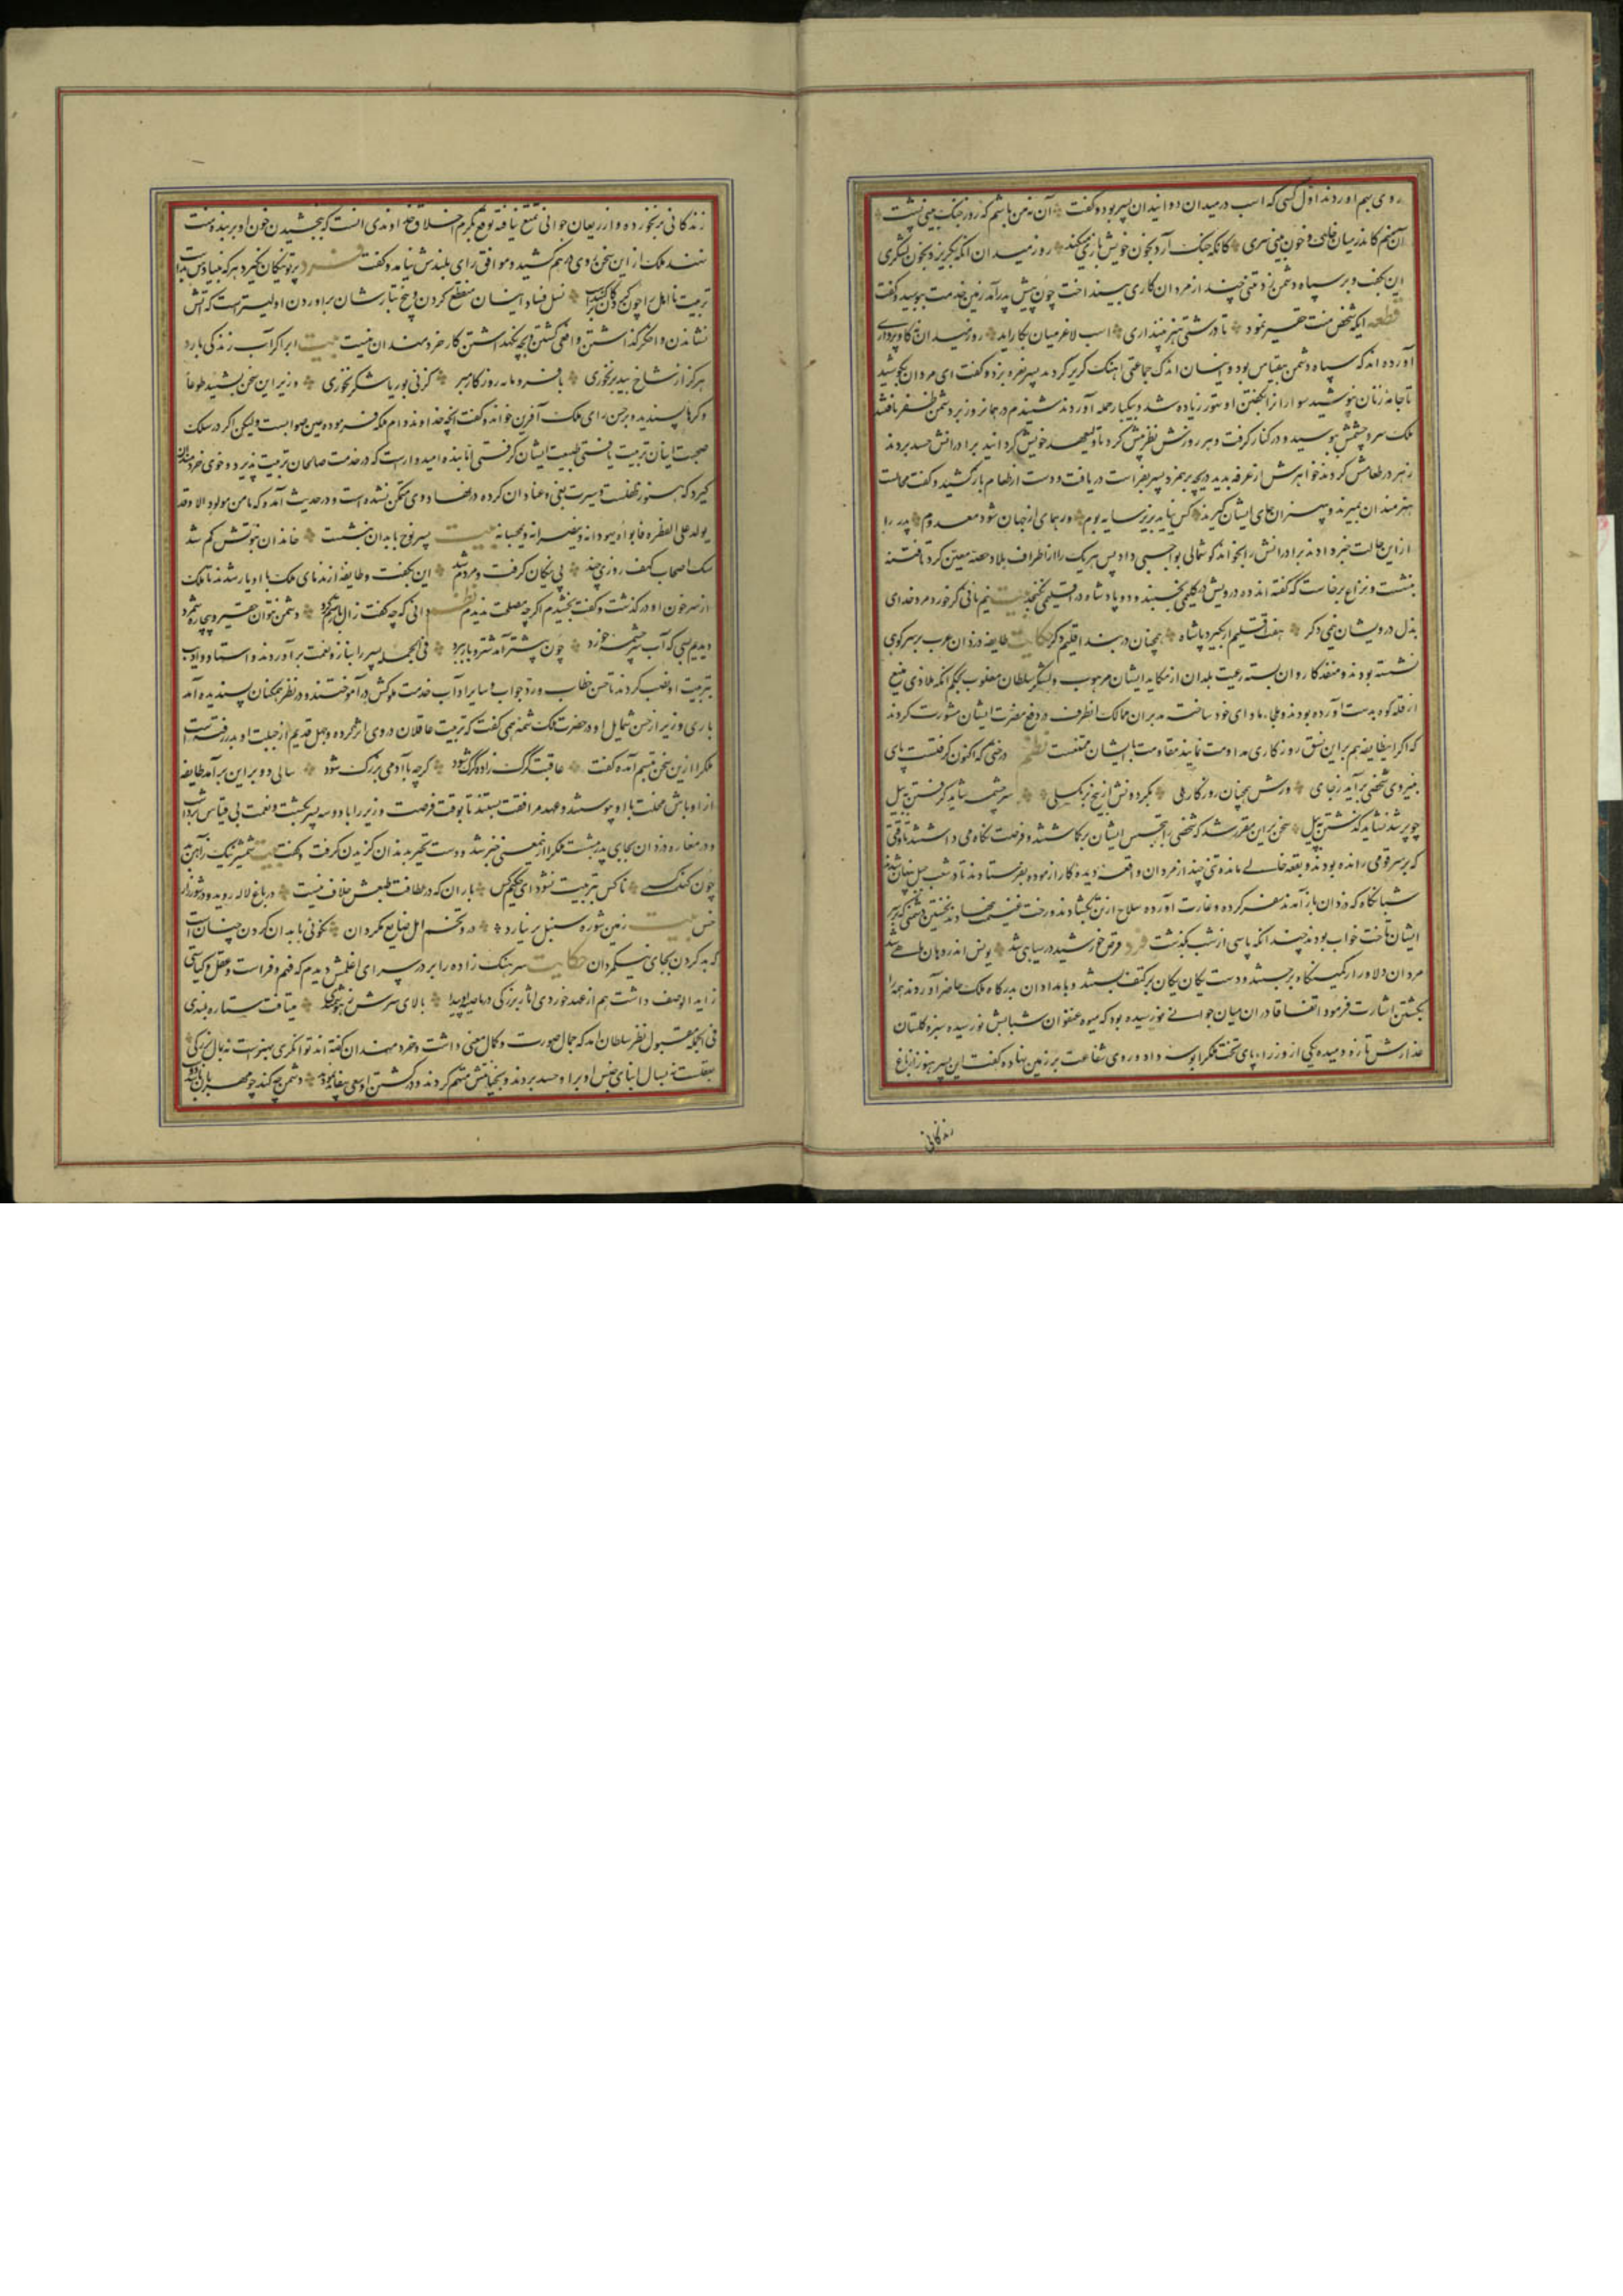 روی بهم اوردند اول کسی که اسب در میدان دوانید ان پسر بود و گفت آن نه من باشم که روز جنک بینی پشت
آن منم کاندر میان خاک و خون بینی سری کانکه جنک آرد بخون خویش بازی میکند روز میدان انکه بگریزد بخون لشکری
این بگفت و بر سپاه دشمن زد تنی چند از مردان کاری بینداخت چون پیش پدر آمد زمین خدمت ببوسید و گفت
قطعه ایکه شخص منت حقیر نمود تا درشتی هنر نپنداری اسب لاغر میان بکار اید روز میدان نه کاو پرواری
آورده اند که سپاه دشمن بیقیاس بود و اینان اندک جماعتی اهنک گریز کردند پسر نعره بزد و گفت ای مردان بکوشید
تا جامه زنان نپوشید سوارانرا بگفتن او تهور زیاده شد و بیکبار حمله آوردند شنیدم در همانروز بر دشمن ظفر یافتند
ملک سر و چشمش ببوسید و در کنار گرفت و هر روزش نظر بیش کرد تا ولیعهد خویش گردانید برادرانش حسد بردند
زهر در طعامش کردند خواهرش از غرفه بدید دریچه بر هم زد پسر بفراست دریافت و دست از طعام باز کشید و گفت محالست
هنرمندان بمیرند و بیهنران جای ایشان گیرند کس نیاید بزیر سایه بوم ور همای از جهان شود معدوم پدر را
از این حالت خبر دادند برادرانش را بخواند گوشمالی بواجبی داد پس هر یک را از اطراف بلاد حصه معین کرد تا فتنه
بنشست و نزاع برخاست که گفته اند ده درویش در گلیمی بخسبند و دو پادشاه در اقلیمی نگنجند بیت نیم نانی گر خورد مرد خدای
بذل درویشان نیمی دکر هفت اقلیم ار بگیرد پادشاه همچنان در بند اقلیم دکر حکایت طایفه دزدان عرب بر سر کوهی
نشسته بودند و منفذ کاروان بسته رعیت بلدان از مکاید ایشان مرهوب و لشکر سلطان مغلوب بحکم انکه ملاذی منیع
از قله کوه بدست آورده بودند و ملجاء و ماوای خود ساخته مدبران ممالک انطرف در دفع مضرت ایشان مشورت کردند
که اکر اینطایفه هم بر این نسق روزکاری مداومت نمایند مقاومت با ایشان ممتنعست نظم درختی که اکنون گرفتست پای
بنیروی شخصی برآید ز جای ورش همچنان روزکاری هلی بگردونش از بیخ بر نکسلی سر چشمه شاید گرفتن به بیل
چو پر شد نشاید گذشتن به پیل سخن بر این مقرر شد که شخصی را بتجسس ایشان برکماشتند و فرصت نگاه می داشتند تا وقتی
که بر سر قومی رانده بودند و بقعه خالی مانده تنی چند از مردان واقعه دیده کار ازموده بفرستادند تا در شعب جبل پنهان شدند
شبانگاه که دزدان باز آمدند سفر کرده و غارت آورده سلاح از تن بگشادند و رخت غنیمت بنهادند نخستین دشمنی که بر سر
ایشان تاخت خواب بود چندانکه پاسی از شب بگذشت فرد قرص خورشید در سیاهی شد یونس اندر دهان ماهی شد
مردان دلاور از کمینگاه بر جستند و دست یکان یکان بر کتف بستند و بامدادان بدرگاه ملک حاضر آوردند همه را
بکشتن اشارت فرمود اتفاقا در ان میان جوانی نو رسیده بود که میوه عنفوان شبابش نو رسیده سبزه کلستان
عذارش تازه دمیده یکی از وزرا، پای تخت ملکرا بوسه داد و روی شفاعت بر زمین نهاد و گفت این پسر هنوز از باغ
زندکانی
زندکانی بر نخورده و از ریعان جوانی تمتع نیافته توقع بکرم اخلاق خداوندی انست که ببخشیدن خون او بر بنده منت
نهند ملک از این سخن روی درهم کشید و موافق رای بلندش نیامد و گفت فرد پرتو نیکان نگیرد هر که بنیادش بدست
تربیت نا اهل را چون گردکان بر گنبد است نسل فساد اینان منقطع کردن و بیخ تبارشان براوردن اولیتر است که اتش
نشاندن و اخگر گذاشتن و افعی کشتن و بچه نگهداشتن کار خردمندان نیست بیت ابر اکر آب زندکی بارد
هرکز از شاخ بید بر نخوری با فرومایه روزکار مبر کز نی بوریا شکر نخوری وزیر این سخن بشنید طوعا
و کرها پسندید و بر حسن رای ملک آفرین خواند و گفت آنچه خداوند دام ملکه فرموده عین صوابست ولیکن اکر در سلک
صحبت اینان تربیت یافتی طبیعت ایشان گرفتی اما بنده امیدوارست که در خدمت صالحان تربیت پذیرد و خوی خردمندان
گیرد که هنوز طفلست و سیرت بغی و عناد ان کرده در نهاد وی متمکن نشده است و در حدیث آمده که ما من مولود الا و قد
یولد علی الفطره فابواه یهودانه و ینصرانه و یمجسانه بیت پسر نوح با بدان بنشست خاندان نبوتش کم شد
سک اصحاب کهف روزی چند پی نیکان کرفت و مردم شد این بگفت و طایفه از ندمای ملک با او یار شدند تا ملک
از سر خون او در گذشت و گفت بخشیدم اکرچه مصلحت ندیدم نظم دانی که چه گفت زال با رستم گرد دشمن نتوان حقیر و بیچاره شمرد
دیدیم بسی که آب سر چشمه خرد چون پیشتر آمد شتر و بار ببرد فی الجمله پسر را بناز و نعمت برآوردند و استاد و ادیب
بتربیت او نصب کردند تا حسن خطاب و رد جواب و سایر اداب خدمت ملوکش در آموختند و در نظر همکنان پسندیده آمد
باری وزیر از حسن شمایل او در حضرت ملک شمه همی گفت که تربیت عاقلان در وی اثر کرده و جهل قدیم از جبلت او بدر رفته است
ملکرا از این سخن تبسم آمد و گفت عاقبت گرک زاده گرک شود گرچه با آدمی بزرک شود سالی دو بر این بر آمد طایفه
از اوباش محلت با او پیوستند و عهد مرافقت بستند تا بوقت فرصت وزیر را با دو پسر بکشت و نعمت بی قیاس برداشت
و در مغاره دزدان بجای پدر بنشست ملکرا از انمعنی خبر شد و دست تحیر بدندان گزیدن گرفت و گفت بیت شمشیر نیک ز آهن بد
چون کند کسی ناکس بتربیت نشود ای حکیم کس باران که در لطافت طبعش خلاف نیست در باغ لاله روید و در شوره زار
خس بیت زمین شوره سنبل بر نیارد در و تخم امل ضایع مگردان نکوئی با بدان کردن چنانست
که بد کردن بجای نیکمردان حکایت سرهنک زاده را بر در سرای اغلمش دیدم که فهم و فراست و عقل و کیاستی
زاید الوصف داشت هم از عهد خوردی اثار بزرکی در ناصیه او پیدا بالای سرش ز هوشمندی میتافت ستاره بلندی
فی الجمله مقبول نظر سلطان امد که جمال صورت و کمال معنی داشت و خردمندان گفته اند توانگری بهنرست نه بمال بزرکی
بعقلست نه بسال ابنای جنس او بر او حسد بردند و بخیانتش متهم کردند و در کشتن او سعی بیفایده نمود دشمن چه کند چو مهربان باشد دوست